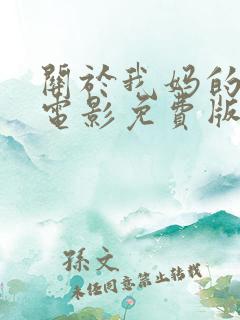 關於我妈的
電影免費版
孫文
未经同意禁止转载